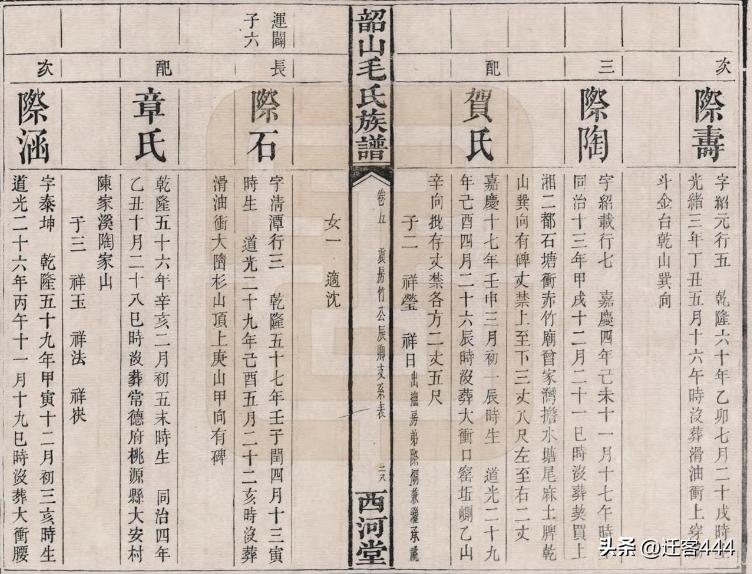 次
際壽
字紹元行五 乾隆六十年乙卯七月二十戌時
光緒三年丁丑五月十六午時沒葬滑油衝上穿
斗金台乾山巽向
三
際陶
字紹載行七 嘉慶四年己未十一月十七午時
同治十三年甲戌十二月二十一巳時沒葬契買上
湘二都石塘衝赤竹廟曾家灣擔水塘尾麻土牌乾
山巽向有碑丈禁上至下三丈八尺左至右二丈
配
賀氏
嘉慶十七年壬申三月初一辰時生 道光二十九
年己酉四月二十六辰時沒葬大衝口窑坵嶼乙山
辛向批存丈禁各方二丈五尺
子二 祥瑩 祥日
韶山毛氏族譜
卷五
西河堂
女一 適沈
運闢
子六
長
際石
字清潭行三 乾隆五十七年壬子閏四月十三寅
時生 道光二十九年己酉五月二十二亥時沒葬
滑油衝大路杉山頂上庚山甲向有碑
配
章氏
乾隆五十六年辛亥二月初五未時生 同治四年
乙丑十月二十八巳時沒葬常德府桃源縣大安村
陳家溪陶家山
子三 祥玉 祥法
次
際涵
字泰坤 乾隆五十九年甲寅十二月初三亥時生
道光二十六年丙午十一月十九巳時沒葬大衝腰
头条 @迁客444